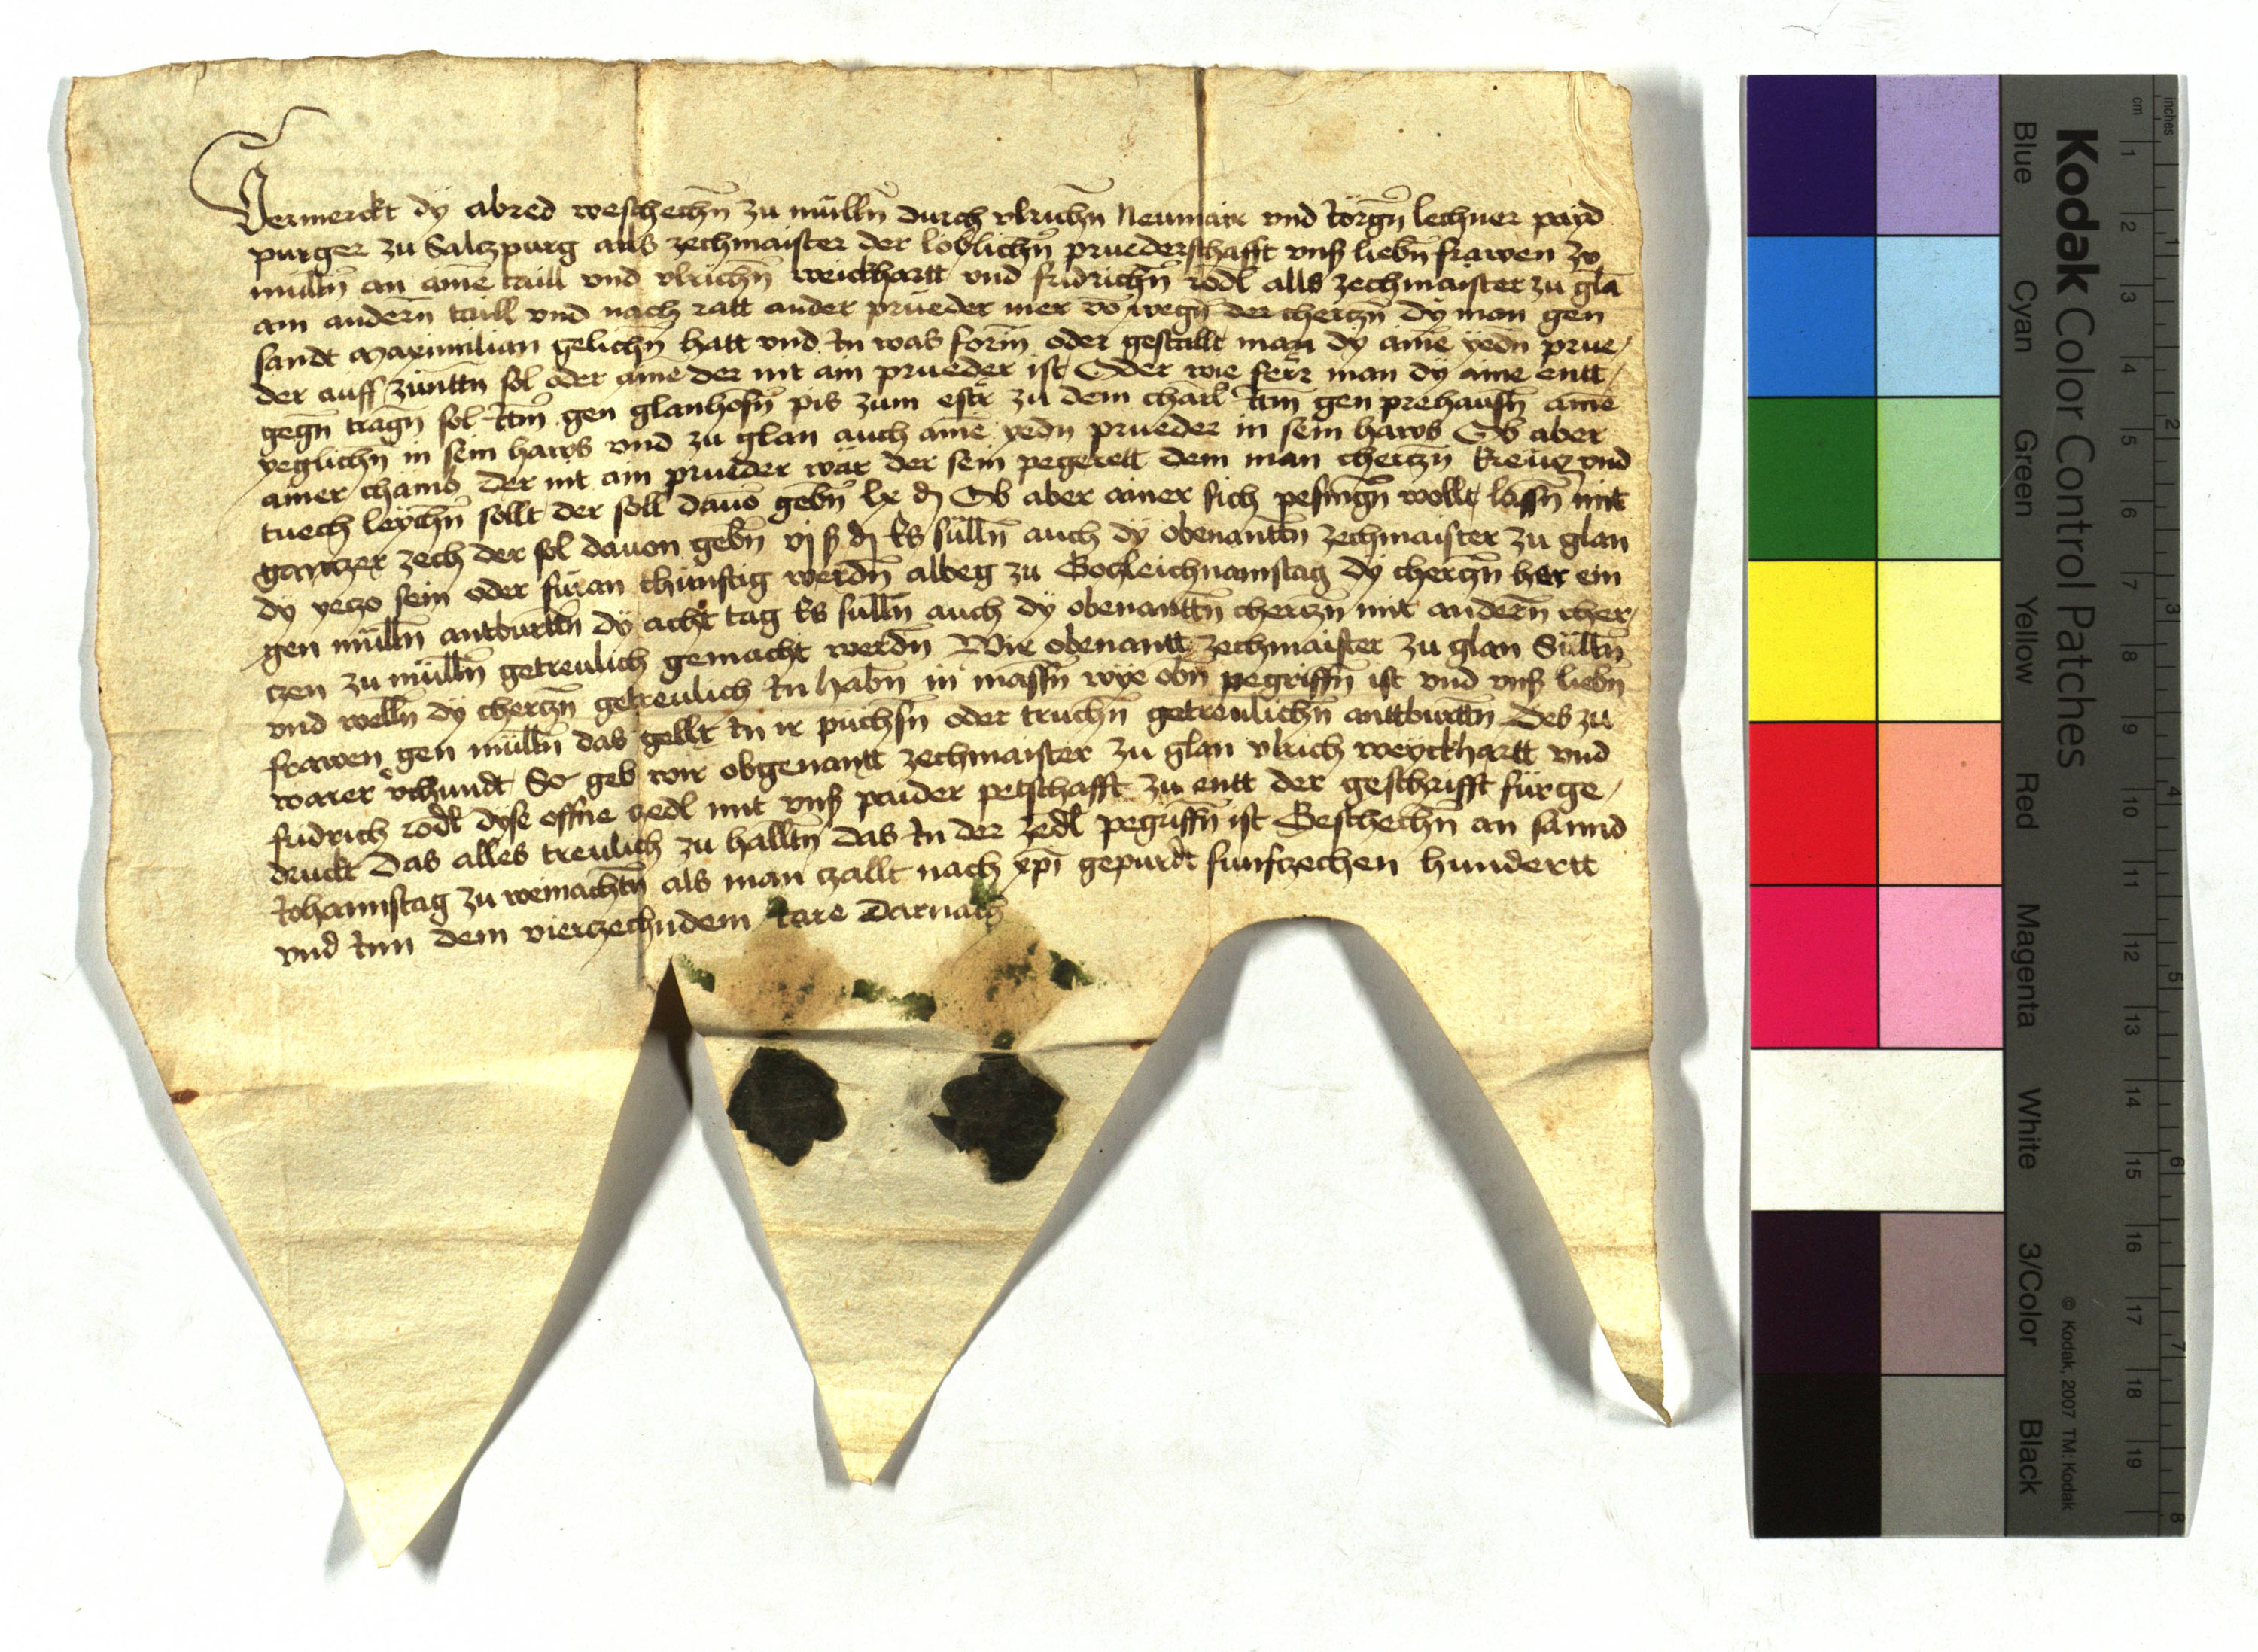 Vermerckt dy abred weschechñ zu mülln̄ durch vlrichn̄ Neumair vnd Iörgn̄ lechner payd
purger zu Saltzpurg als zechmaister der loblichn̄ pruederschafft vnß liebn̄ frawen zo
mülln̄ an aime taill vnd vlrichn̄ weickhartt vnd fridrichn̄ rödl alls zechmaister zu glā
am andern̄ taill vnd nach ratt ander prüeder mer vō wegn̄ der chertzn̄ dy man gen
sandt Maximilian gelichn̄ hatt vnd In was form̄ oder gestallt man dy aime yedn̄ prue/
der auff zünttn̄ sol oder aime der nit ain prueder ist Oder wie ferr man dy aime entt/
gegn̄ tragn̄ sol Itm̄ gen glanhofn̄ pis zum estr zu dem charl Itm̄ gen prehausn̄ aime
yeglichn̄ in sein haws vnd zu glan auch aime yedn̄ prueder in sein haws Ob aber
ainer cham der nit ain prueder wär der sein pegerett dem man chertzn̄ kreuz vnd
tuech leychn̄ sollt der soll dauō gebn̄ lx ₰ Ob aber ainer sich pesingn̄ wollt lassn̄ mit
gantzer zech der sol dauon gebn̄ vj ß ₰ Es sülln̄ auch dy obenanttn̄ zechmaister zu glan
dy yetzo sein oder füran chünftig werdn̄ albeg zu Gotzleichnamstag dy chertzn̄ her ein
gen mülln̄ antburttn̄ dy acht tag Es sülln̄ auch dy obenanttn̄ chertzn̄ mit andern̄ cher/
tzen zu mülln̄ getreulich gemacht werdn̄ Wir obenantt zechmaister zu glan Sülln̄
vnd welln̄ dy chertzn̄ getreulich In habn̄ in massn̄ wye obn̄ pegriffn̄ ist vnd vnß liebn̄
frawen gen mülln̄ das gellt In ir püchsn̄ oder truchn̄ getreulichn̄ anttburttn̄ Des zu
warer vrchundt So geb wir obgenantt zechmaister zu glan vlrich weyckhartt vnd
fridrich rodl dyse offne zedl mit vnß paider petschafft zu entt der geschrifft fürge/
druckt Das alles treulich zu halltn̄ das In der zedl pegriffn̄ ist Geschechn̄ an sannd
Iohannstag zu weinachtn̄ als man tzallt nach xp̄i gepurdt funfzechen hundertt
vnd Inn dem viertzechndem Iare Darnach
Kodak Color Control Patches
Blue Cyan Green Yellow Red Magenta White 3/Color Black
© Kodak, 2007 TM: Kodak
cm 1 2 3 4 5 6 7 8 9 10 11 12 13 14 15 16 17 18 19
inches 1 2 3 4 5 6 7 8